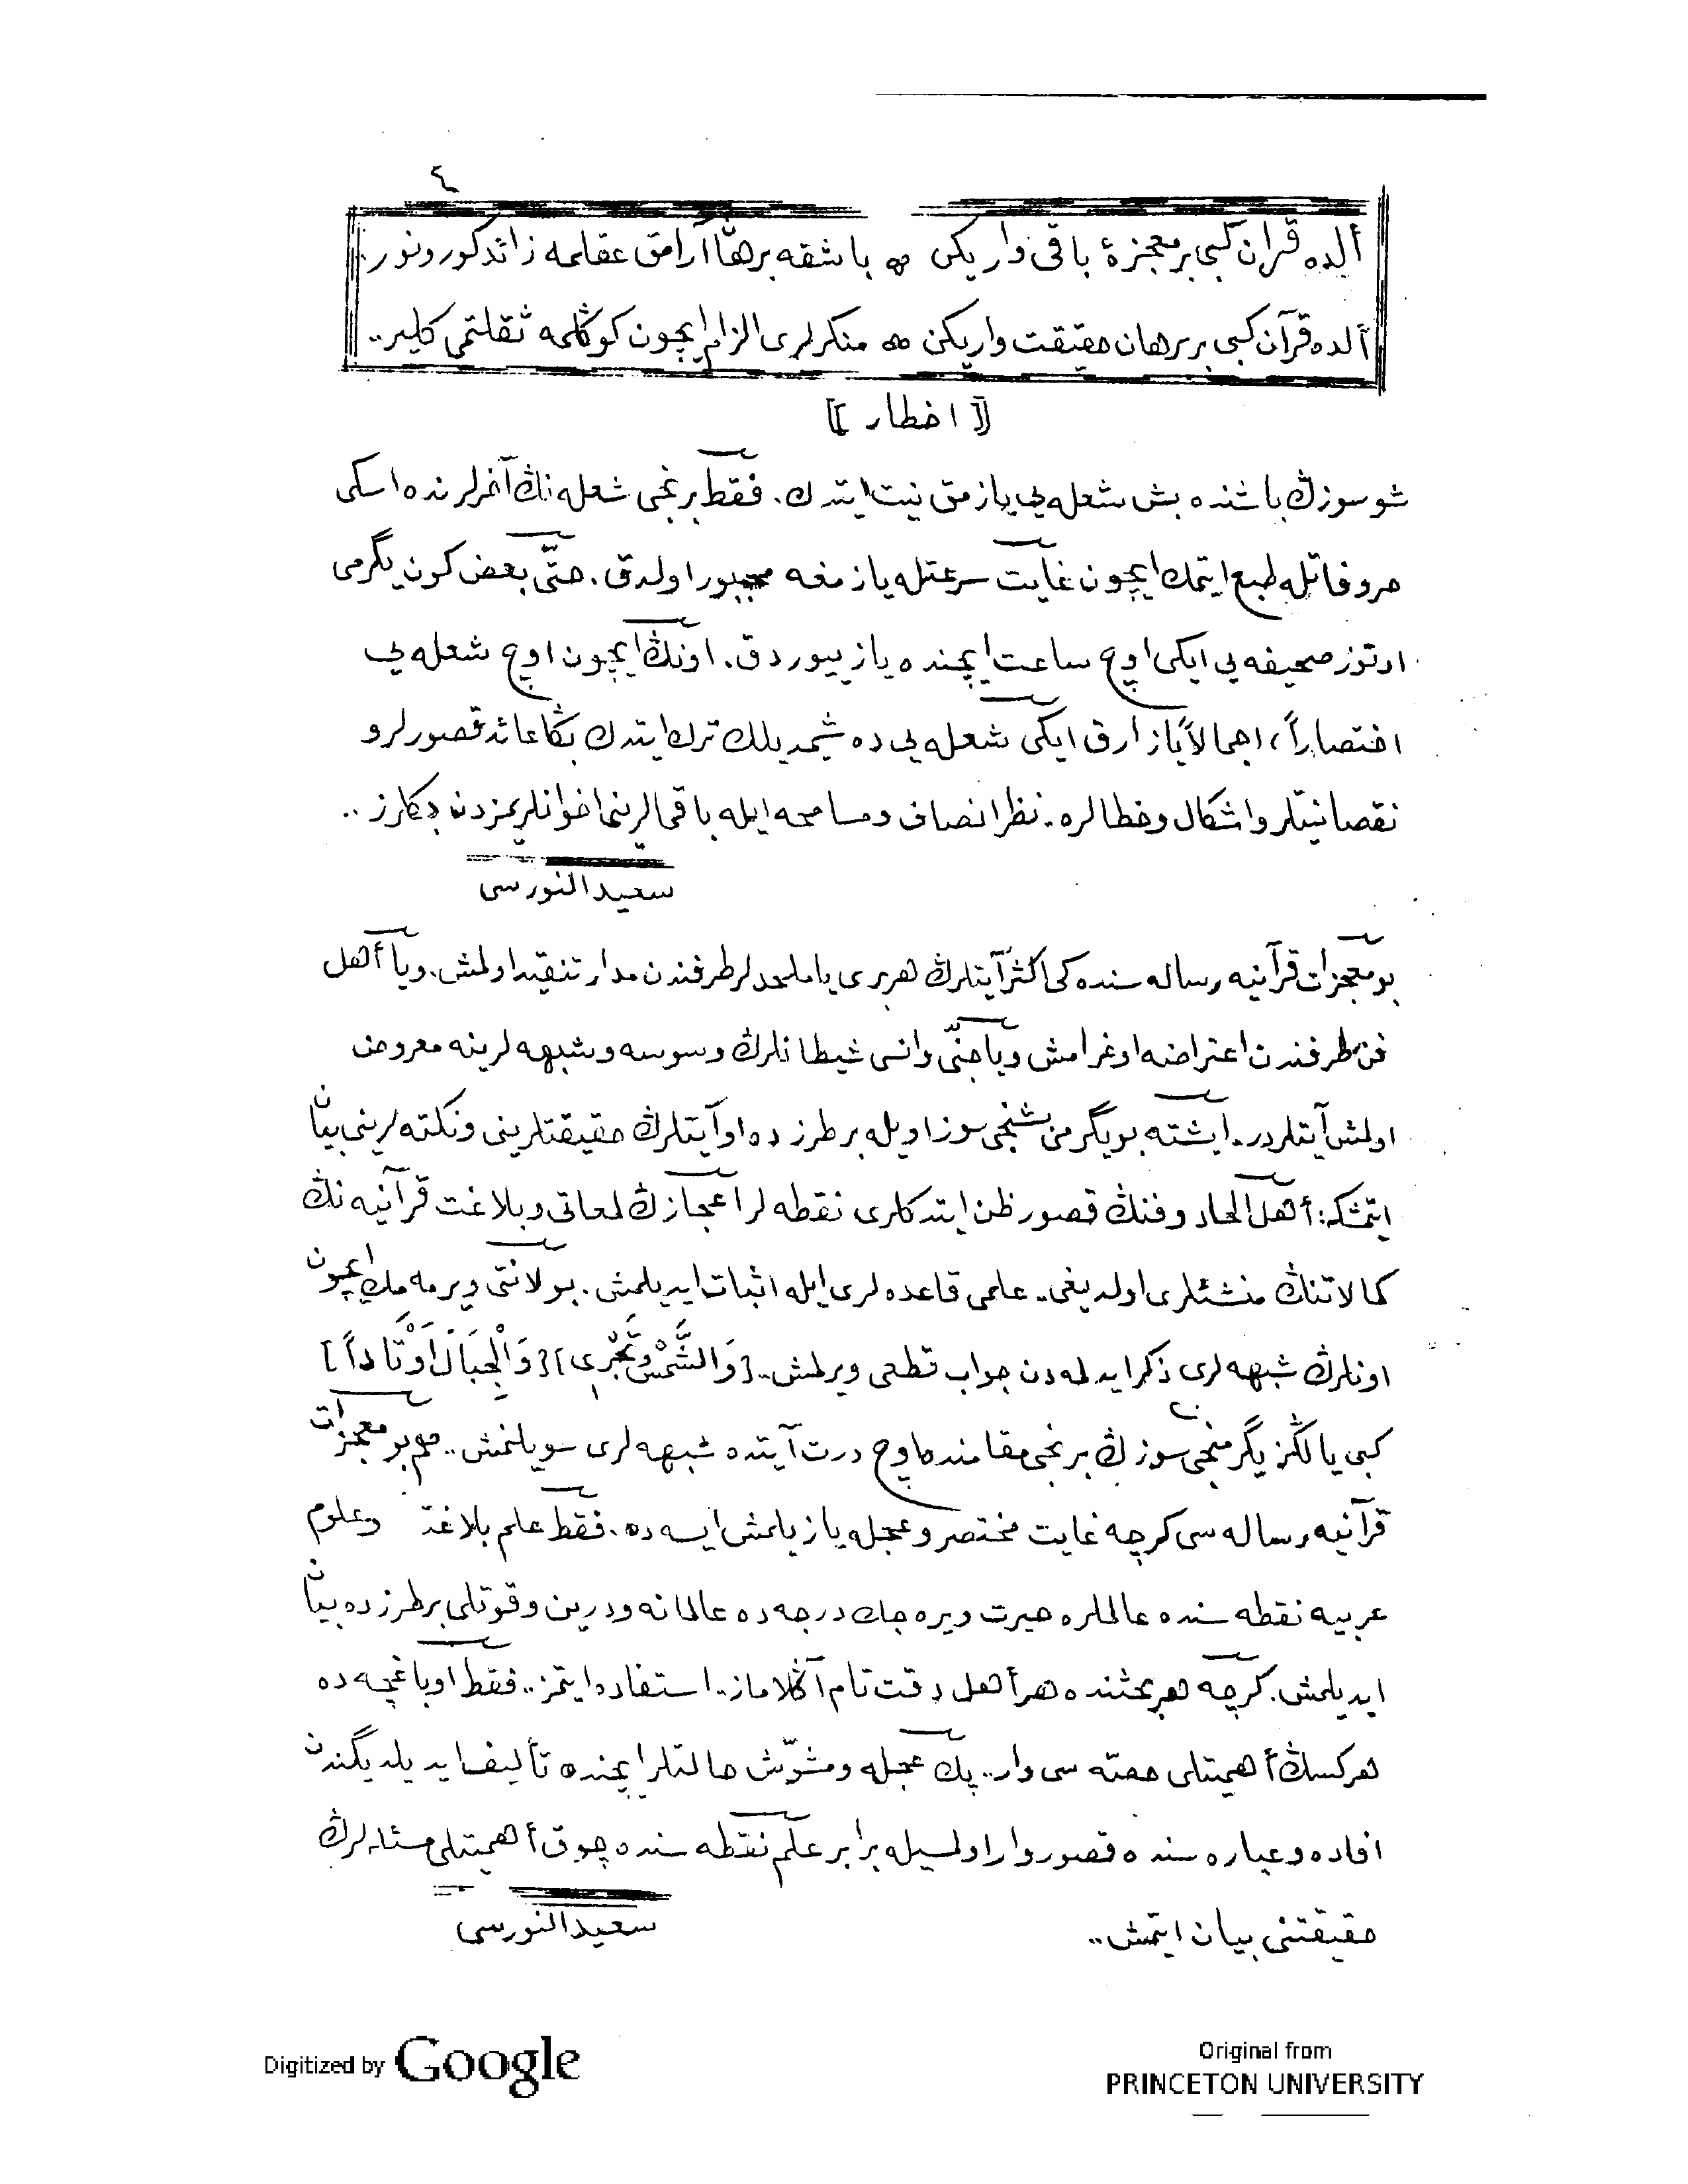 ٤
ألده قرآن كبى بر معجزۀ باقى وار يكن ۞ باشقه برهان آرامق عقلمه زائد كورونور.
ألده قرآن كبى بر برهان حقيقت واريكن ۞ منكرلرى الزام ايچون كوڭلمه ثقلتمى كلير..
[ اخطار ]
شو سوزڭ باشنده بش شعله يى يازمق نيت ايتدك. فقط برنجى شعله نڭ آخرلرنده اسكى
حروفاتله طبع ايتمك ايچون غايت سرعتله يازمغه مجبور اولدق. حتّى بعض كون يگرمى
اوتوز صحيفه يى ايكى اوچ ساعت ايچنده يازييوردق. اونڭ ايچون اوچ شعله يى
اختصاراً، اجمالاً يازارق ايكى شعله يى ده شيمديلك ترك ايتدك بڭا عائد قصورلر و
نقصانيتلر و اشكال و خطالره. نظر انصاف و مسامحه ايله باقمالرينى اخوانلريمزدن بكلرز..
سعيد النورسى
بو معجزات قرآنيه رساله سنده كى اكثر آيتلرڭ هربرى يا ملحدلر طرفندن مدار تنقيد اولمش. ويا أهل
فن طرفندن اعتراضه اوغرامش ويا جنّى و انسى شيطانلرڭ وسوسه و شبهه لرينه معروض
اولمش آيتلردر. ايشته بو يگرمى بشنجى سوز اويله بر طرزده او آيتلرڭ حقيقتلرينى و نكته لرينى بيان
ايتمشكه: أهل الحاد و فنڭ قصور ظن ايتدكلرى نقطه لر اعجازڭ لمعاتى و بلاغت قرآنيه نڭ
كمالاتنڭ منشئلرى اولديغى.. علمى قاعده لرى ايله اثبات ايديلمش. بولانتى ويرمه مك ايچون
اونلرڭ شبهه لرى ذكر ايدلمه دن جواب قطعى ويرلمش.. [وَالشَّمْسُ تَجْرِى] [وَالْجِبَالَ اَوْتَاداً]
كبى يالڭز يگرمنجى سوزڭ برنجى مقامنده اوچ درت آيتده شبهه لرى سويلنمش.. هم بو معجزات
قرآنيه رساله سى كرچه غايت مختصر و عجله يازيلمش ايسه ده. فقط علم بلاغت و علوم
عربيه نقطه سنده عالملره حيرت ويره جك درجه ده عالمانه و درين و قوتلى بر طرزده بيان
ايديلمش. كرچه هر بحثنده هر أهل دقت تام آڭلاماز.. استفاده ايتمز.. فقط او باغچه ده
هركسڭ أهميتلى حصّه سى وار.. پك عجله و مشوّش حالتلر ايچنده تأليف ايديلديگندن
افاده و عباره سنده قصور وار اولمسيله برابر علم نقطه سنده چوق أهميتلى مسئله لرڭ
حقيقتنى بيان ايتمش..
سعيد النورسى
Digitized by Google
Original from
PRINCETON UNIVERSITY